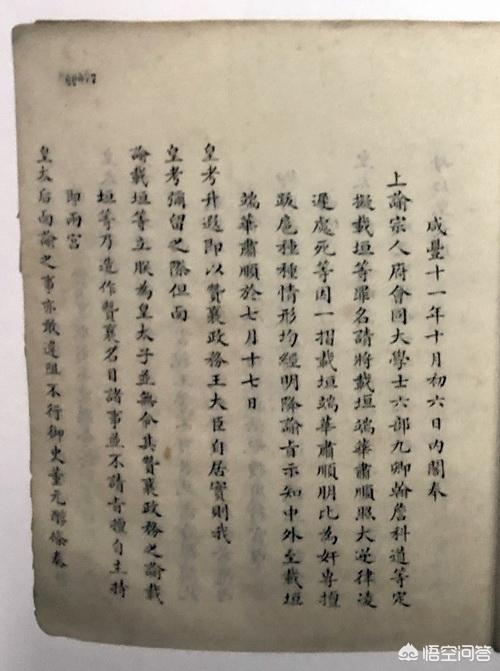 咸豐十一年十月初六日內閣奉
上諭宗人府會同大學士六部九卿翰詹科道等定
擬載垣等罪名請將載垣端華肅順照大逆律凌
遲處死等因一摺載垣端華肅順朋比為奸專擅
跋扈種種情形均經明降諭旨示知中外至載垣
端華肅順於七月十七日
皇考升遐即以贊襄政務王大臣自居實則我
皇考彌留之際但面
諭載垣等立朕為皇太子並無令其贊襄政務之諭載
垣等乃造作贊襄名目諸事並不請旨擅自主持
即兩宮
皇太后面諭之事亦敢違阻不行御史董元醇條奏
悟空问答